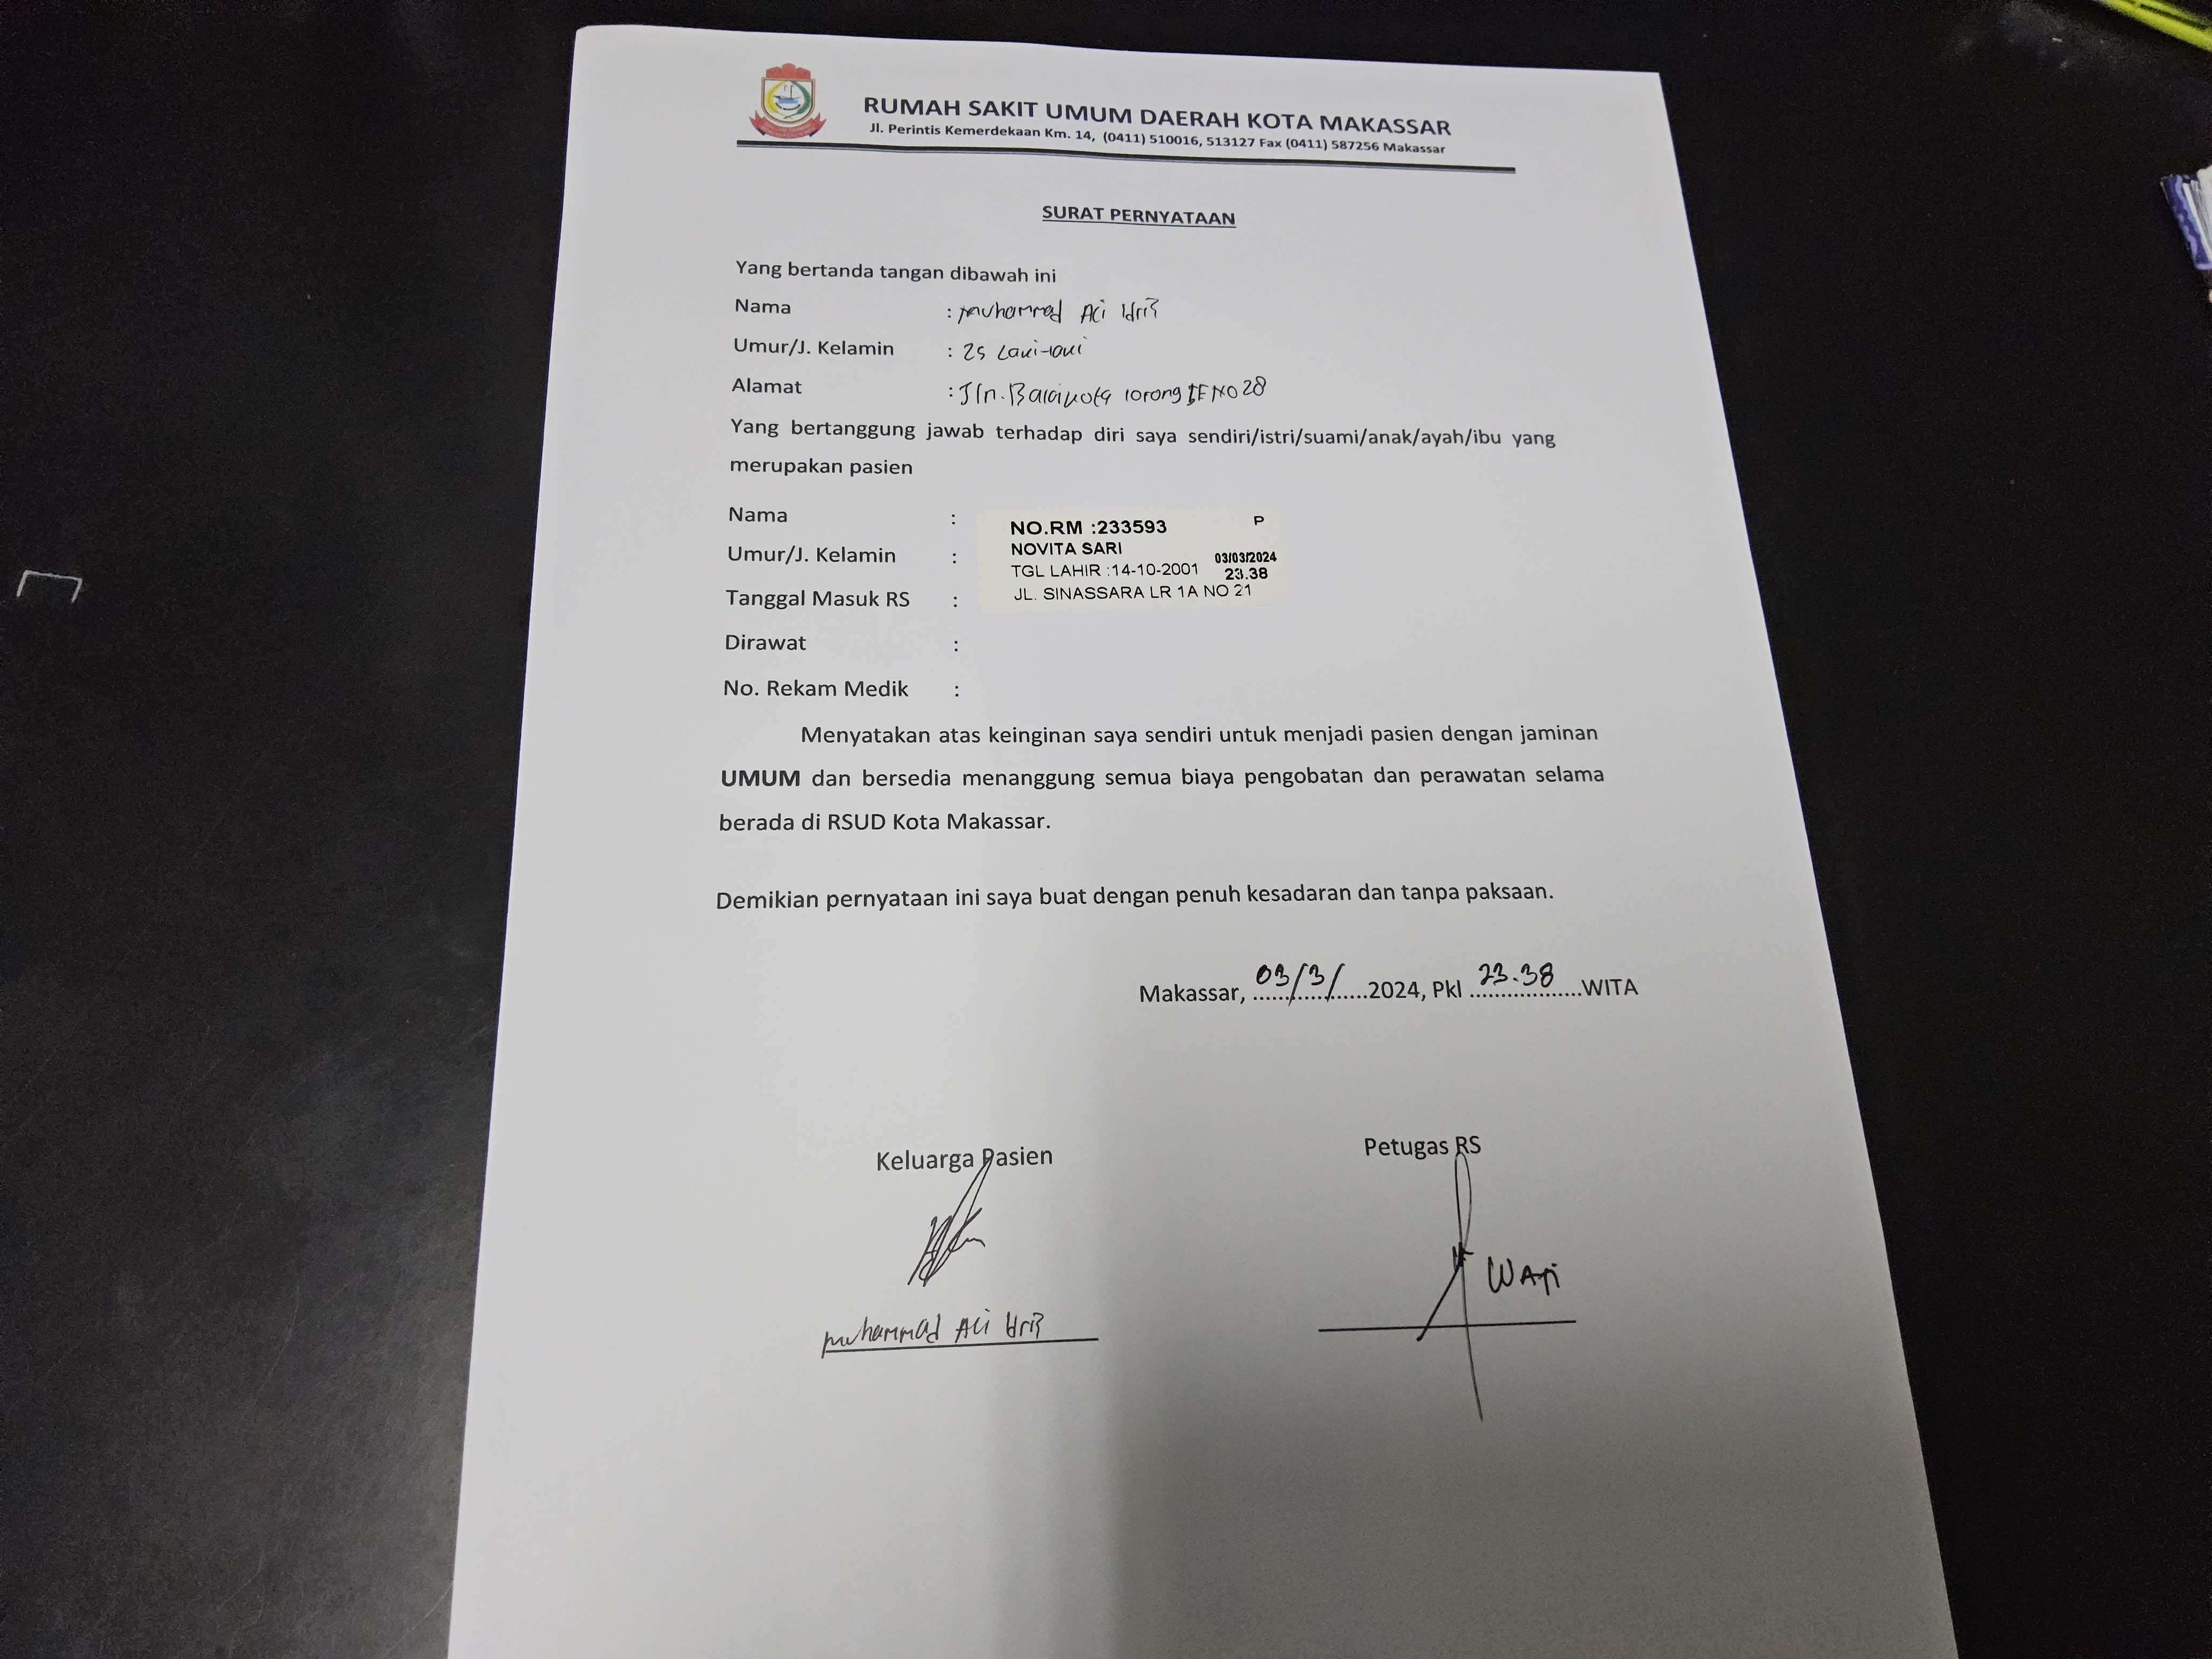 RUMAH SAKIT UMUM DAERAH KOTA MAKASSAR
Jl. Perintis Kemerdekaan Km. 14, (0411) 510016, 513127 Fax (0411) 587256 Makassar
SURAT PERNYATAAN
Yang bertanda tangan dibawah ini
Nama : Muhammad Ali Idris
Umur/J. Kelamin : 25 Laki-laki
Alamat : Jln. Balaikota lorong NO 28
Yang bertanggung jawab terhadap diri saya sendiri/istri/suami/anak/ayah/ibu yang
merupakan pasien
Nama :
Umur/J. Kelamin :
Tanggal Masuk RS :
Dirawat :
No. Rekam Medik :
NO.RM :233593 P
NOVITA SARI
TGL LAHIR :14-10-2001 03/03/2024
23.38
JL. SINASSARA LR 1A NO 21
Menyatakan atas keinginan saya sendiri untuk menjadi pasien dengan jaminan
UMUM dan bersedia menanggung semua biaya pengobatan dan perawatan selama
berada di RSUD Kota Makassar.
Demikian pernyataan ini saya buat dengan penuh kesadaran dan tanpa paksaan.
Makassar, 03/3/ 2024, Pkl 23.38 WITA
Keluarga Pasien
Petugas RS
WATI
Muhammad Ali Idris